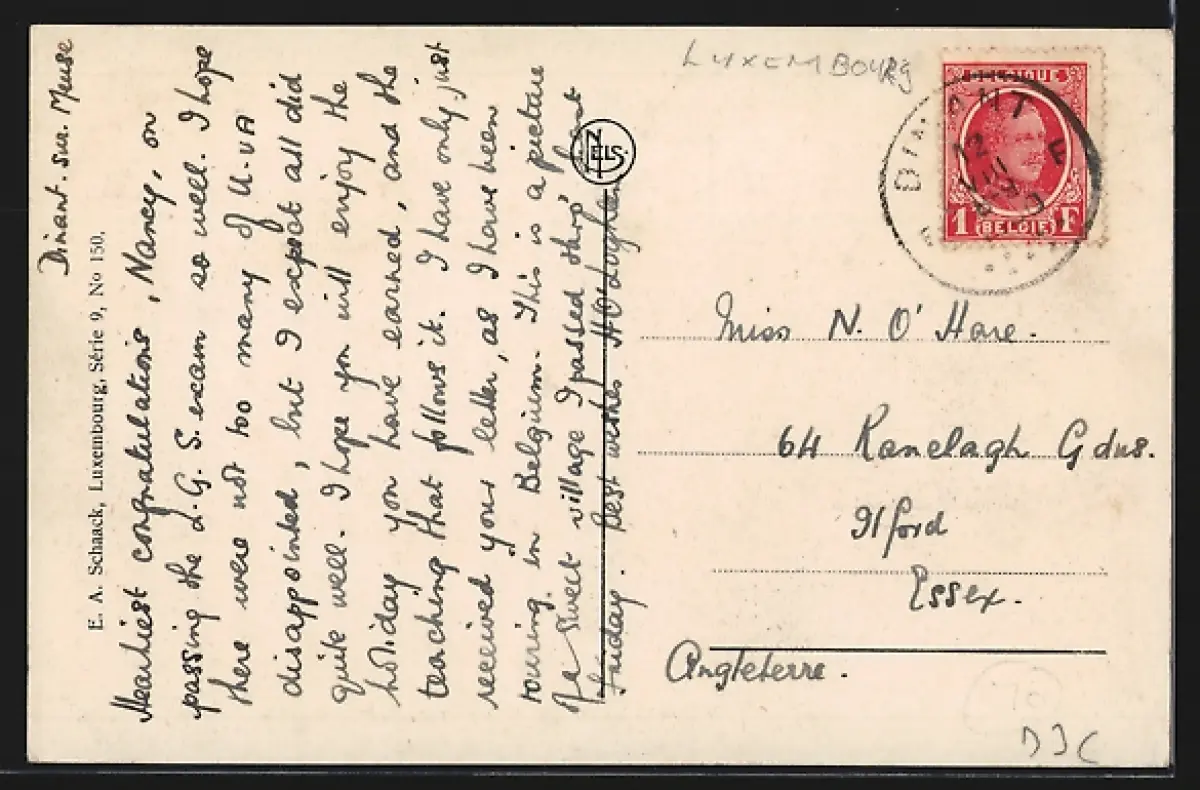 Dinant. sur. Meuse
Heartiest congratulations, Nancy, on
passing the L.G.S. exam so well. I hope
there were not too many of U.VA
disappointed, but I expect all did
quite well. I hope you will enjoy the
holiday you have earned, and the
teaching that follows it. I have only just
received your letter, as I have been
touring in Belgium. This is a picture
of a sweet village I passed thro'
Friday. Best wishes. H O'Loghan
E. A. Schaack, Luxembourg, Série 9, No 150.
NELS
LUXEMBOURG
BELGIQUE
1 F
BELGIE
DINANT
12
VIII
E
Miss N. O'Hare.
64 Ranelagh Gdns.
Ilford
Essex.
Angleterre.
10
DJC